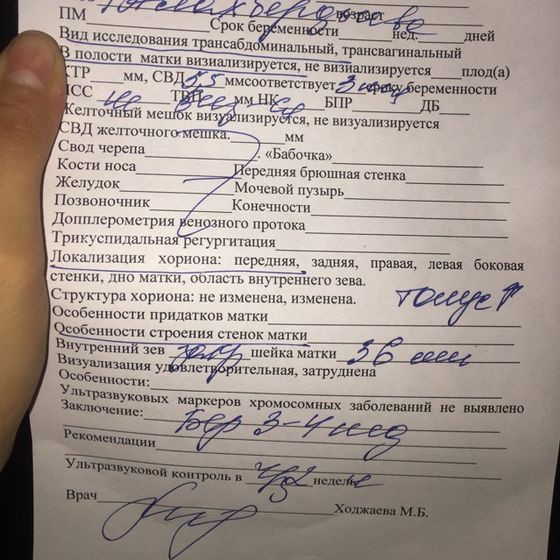 возраст
ПМ Срок беременности нед. дней
Вид исследования трансабдоминальный, трансвагинальный
В полости матки визиализируется, не визиализируется плод(а)
КТР мм, СВД 5,5 ммсоответствует 3 нед сроку беременности
ЧСС ТВП мм НК БПР ДБ
Желточный мешок визуализируется, не визуализируется
СВД желточного мешка. мм
Свод черепа . «Бабочка»
Кости носа Передняя брюшная стенка
Желудок Мочевой пузырь
Позвоночник Конечности
Допплерометрия венозного протока
Трикуспидальная регургитация
Локализация хориона: передняя, задняя, правая, левая боковая
стенки, дно матки, область внутреннего зева.
Структура хориона: не изменена, изменена. тонус ↑
Особенности придатков матки
Особенности строения стенок матки
Внутренний зев закр шейка матки 36 мм
Визуализация удовлетворительная, затруднена
Особенности:
Ультразвуковых маркеров хромосомных заболеваний не выявлено
Заключение: Бер 3-4 нед
Рекомендации
Ультразвуковой контроль в недели
Врач Ходжаева М.Б.